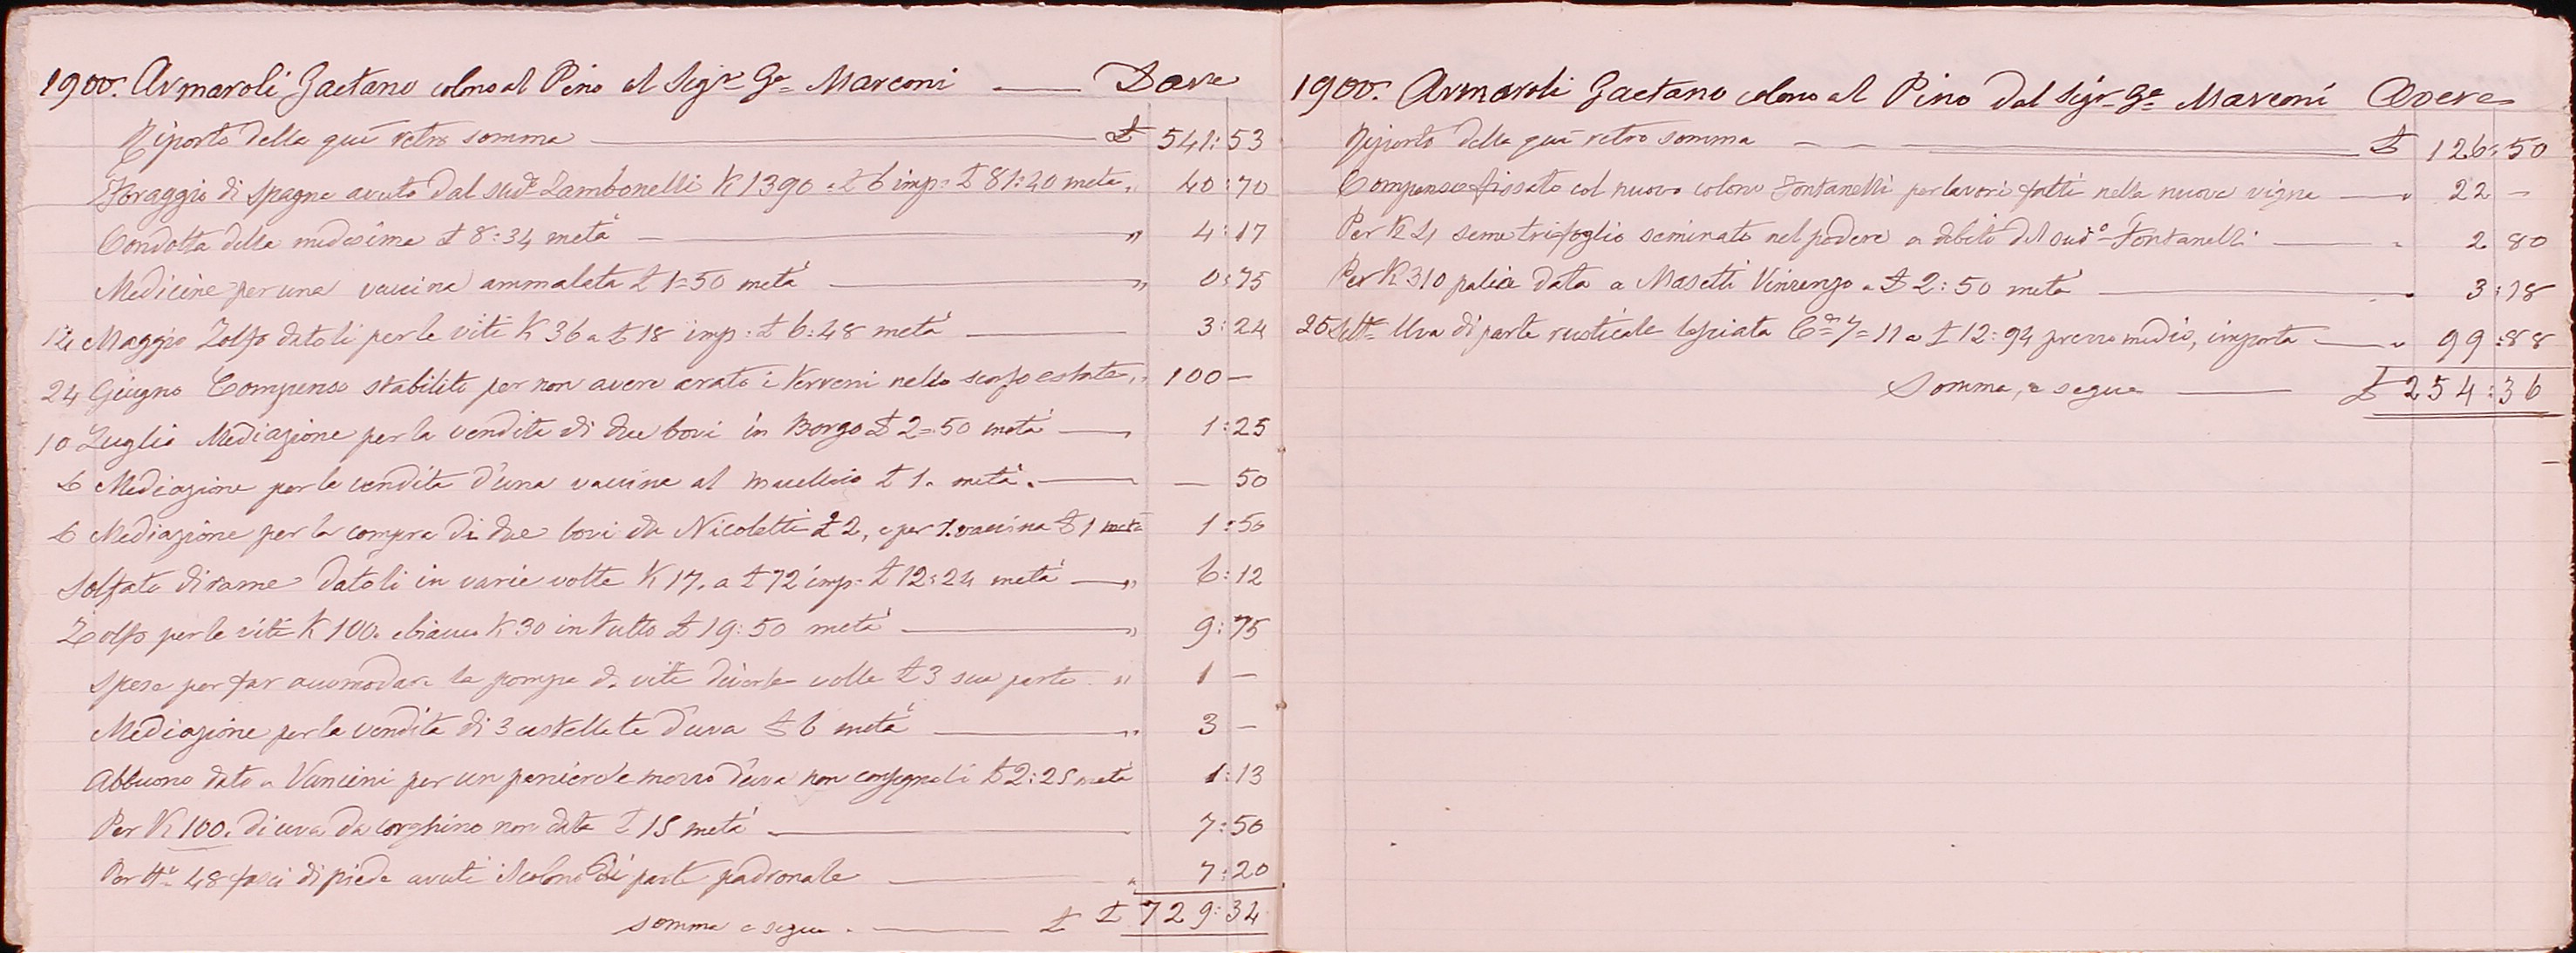 1900. Armaroli Gaetano colono al Pino al Sigr Ge Marconi Dare
Riporto della quì retro somma £ 541:53
Foraggio di spagna avuto dal sudo Zambonelli K 1390 a £ 6 imp: £ 81:40 metà „ 40:70
Condotta della medesima £ 8:34 metà „ 4:17
Medicine per una vaccina ammalata £ 1=50 metà „ 0:75
12 Maggio Zolfo datoli per le viti K 36 a £ 18 imp: £ 6:48 metà 3:24
24 Giugno Compenso stabilito per non avere arato i terreni nello scorso estate „ 100 —
10 Luglio Mediazione per la vendita di due bovi in Borgo £ 2=50 metà 1:25
Mediazione per la vendita d'una vaccina al macello £ 1. metà. — 50
Mediazione per la compra di due bovi da Nicoletti £ 2, e per 1. vaccina £ 1 metà 1:50
Solfato di rame datoli in varie volte K 17. a £ 72 imp: £ 12:24 metà „ 6:12
Zolfo per le viti K 100. K 30 in tutto £ 19:50 metà „ 9:75
Spesa per far accomodare la pompa d. viti diverse volte £ 3 sua parte „ 1 —
Mediazione per la vendita di 3 castellate d'uva £ 6 metà „ 3 —
Abbuono dato a Vancini per un paniere e mezzo d'uva non consegnati £ 2:25 metà 1:13
Per K 100. di uva da non data £ 15 metà 7:50
Per No 48 fasci di piede avuti il colono di parte padronale „ 7:20
somma e segue. £ £ 729:34
1900. Armaroli Gaetano colono al Pino dal Sigr Ge Marconi Avere
Riporto della quì retro somma £ 126:50
Compenso fissato col nuovo colono Fontanelli per lavori fatti nella nuova vigna „ 22 —
Per K 4 seme trifoglio seminato nel podere a debito del sudo Fontanelli „ 2 80
Per K 310 palia data a Masetti Vincenzo a £ 2:50 metà „ 3:18
25 Sett. Uva di parte rusticale lasciata Ce 7=11 a £ 12:94 prezzo medio, importa „ 99:88
Somma, e segue £ 254:36